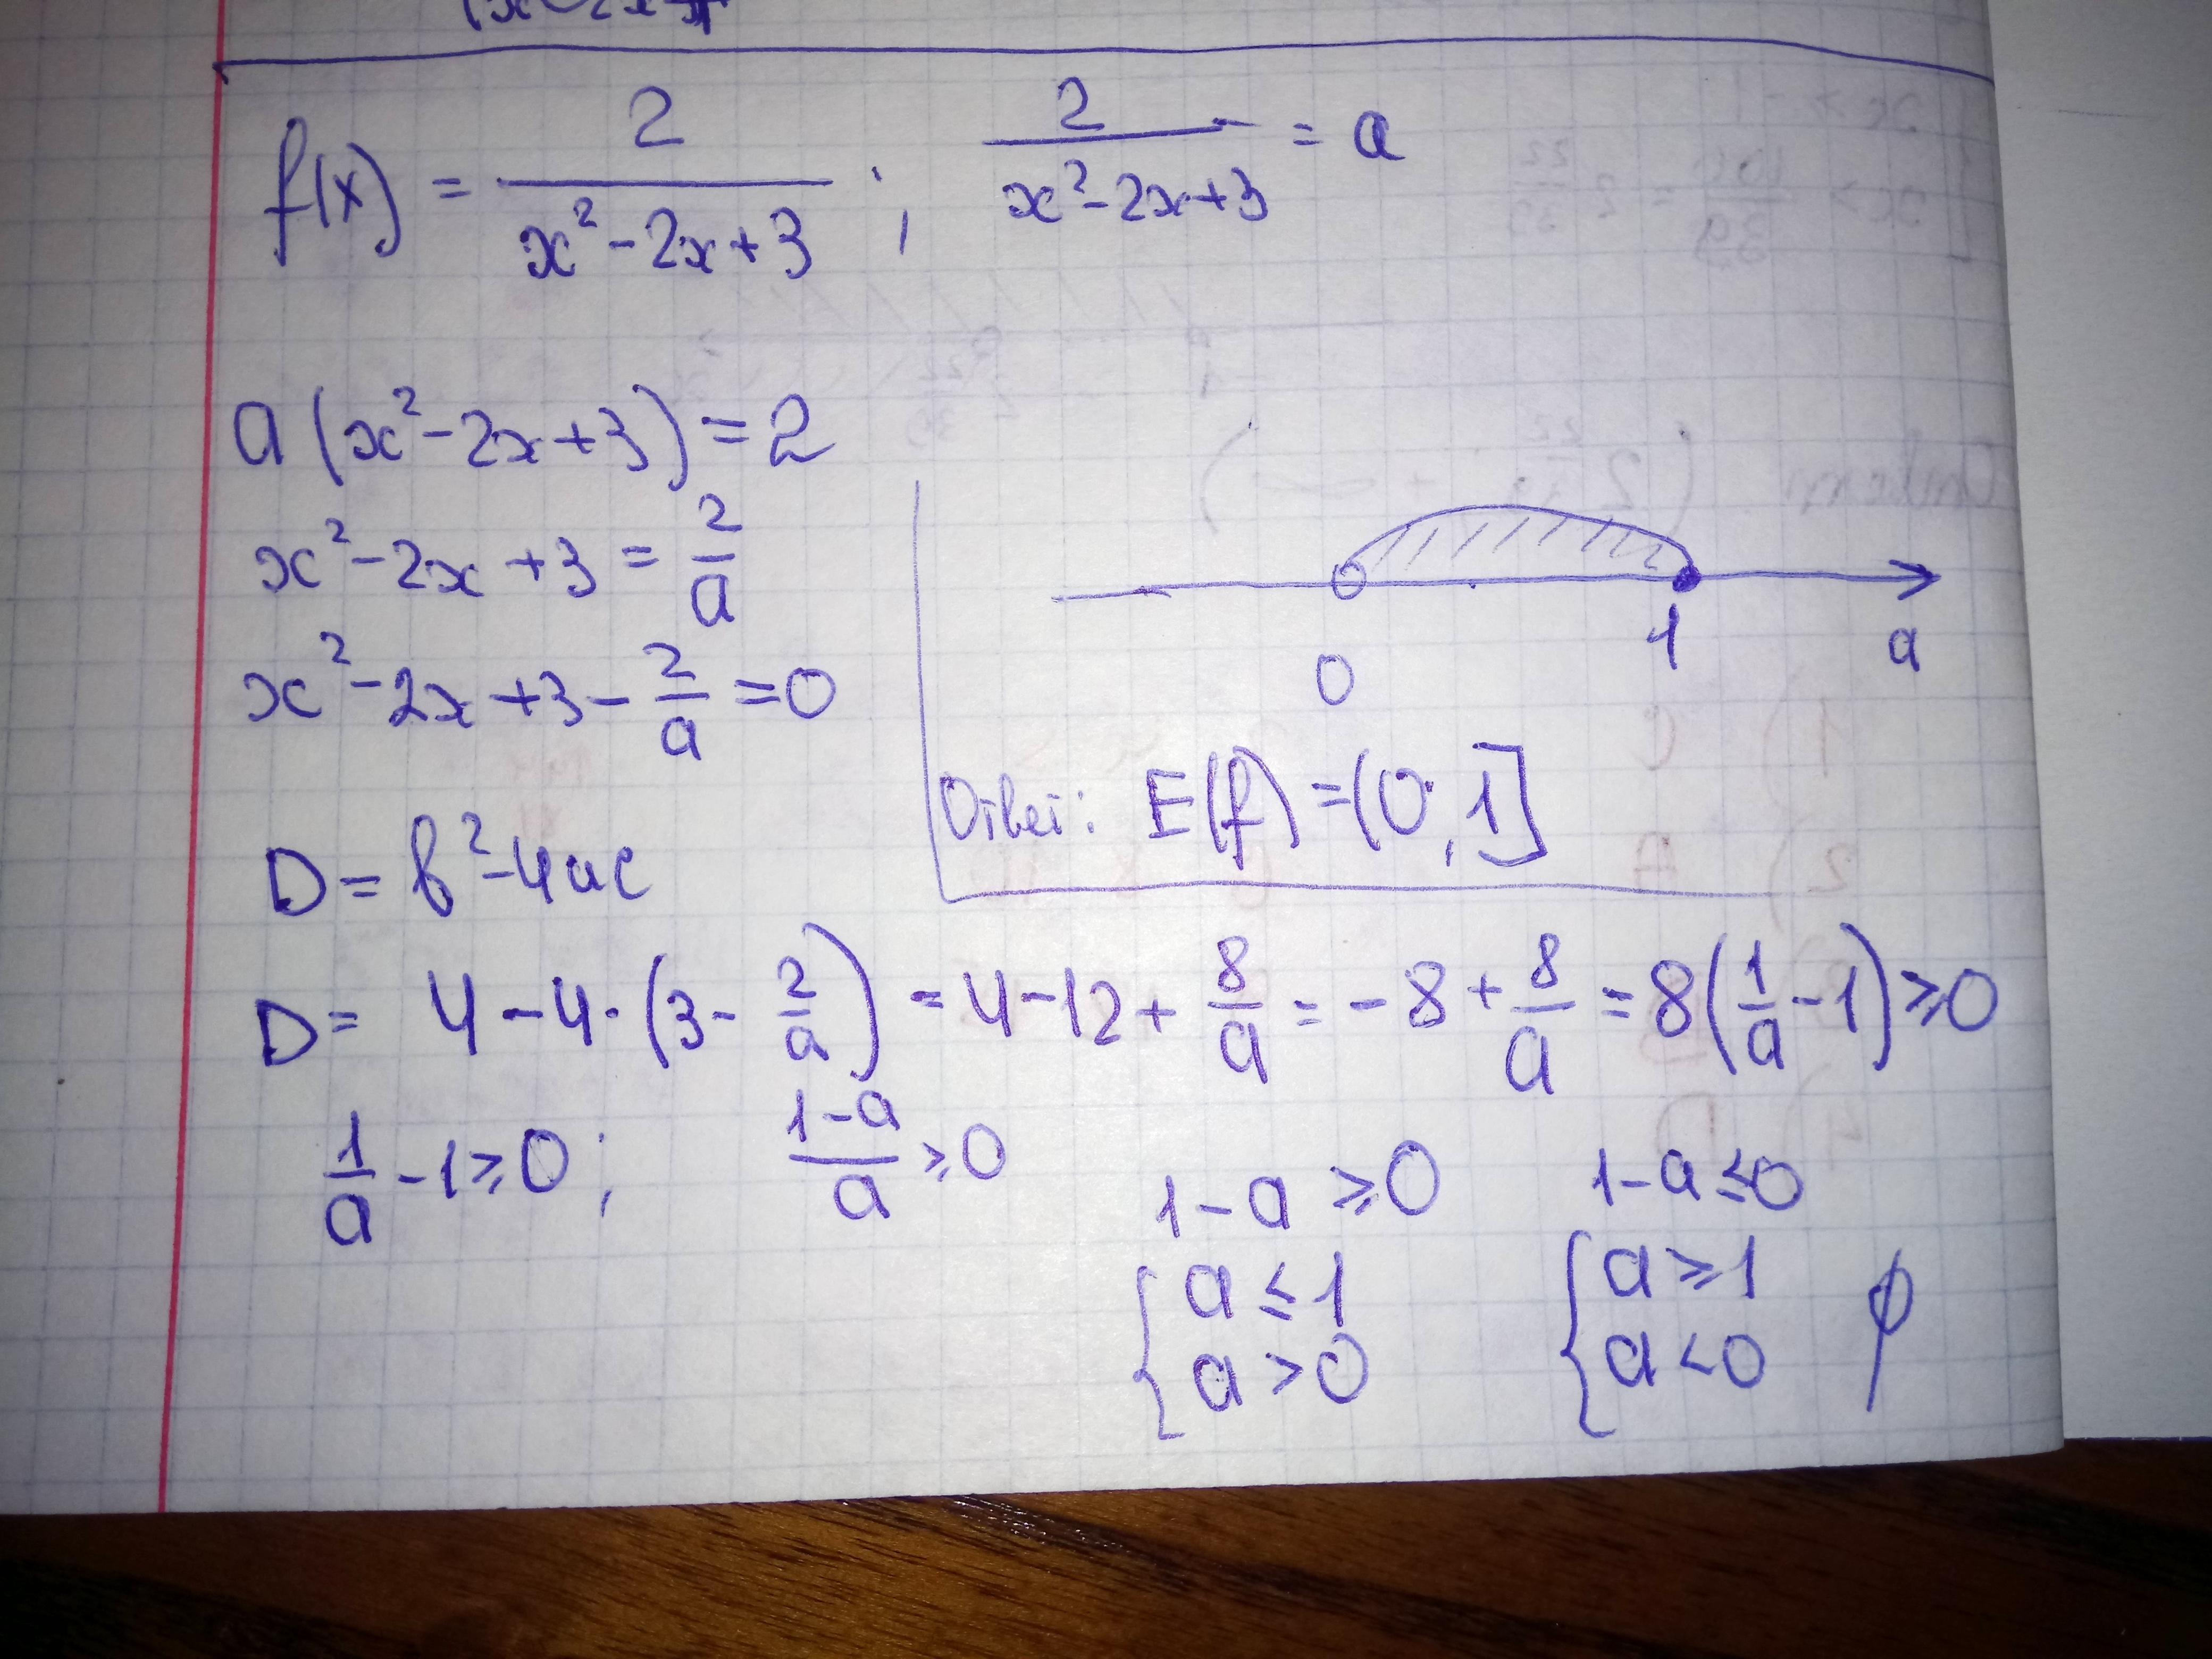 f(x) = 2/(x²-2x+3) ; 2/(x²-2x+3) = a
a(x²-2x+3)=2
x²-2x+3=2/a
x²-2x+3-2/a=0
0 1 a
E(f)=(0;1]
D=b²-4ac
D= 4-4·(3-2/a) = 4-12+8/a = -8+8/a = 8(1/a-1)≥0
1/a-1≥0; (1-a)/a≥0
1-a≥0 1-a≤0
{a≤1 {a≥1 ∅
a>0 a<0